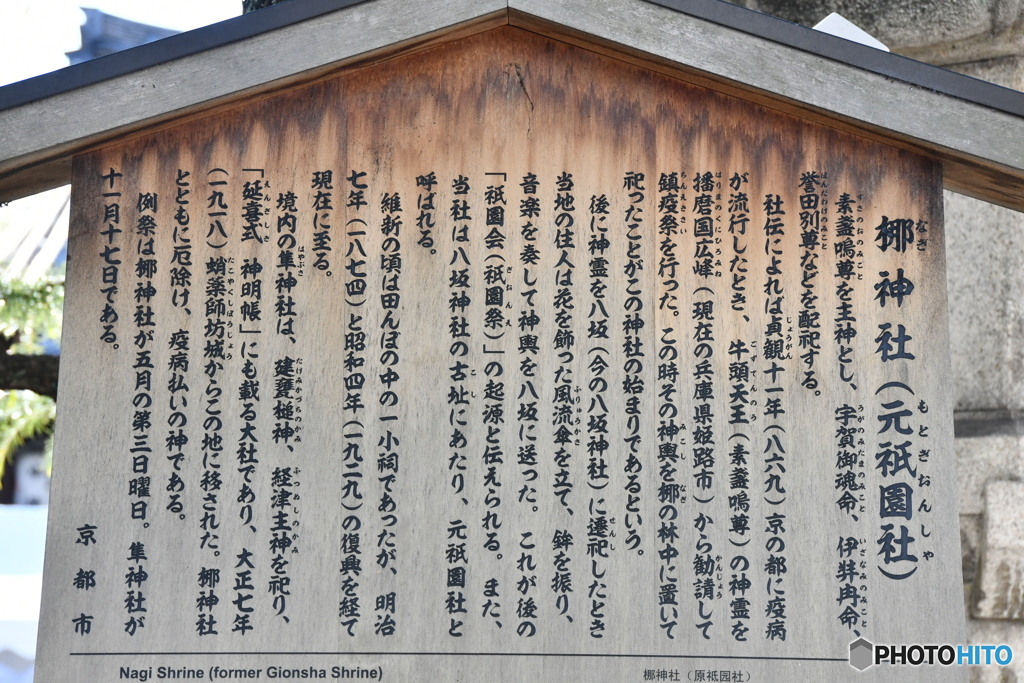 梛神社（元祇園社）
素盞嗚尊を主神とし、宇賀御魂命、伊弉冉命、
誉田別尊などを配祀する。
社伝によれば貞観十一年（八六九）京の都に疫病
が流行したとき、牛頭天王（素盞嗚尊）の神霊を
播磨国広峰（現在の兵庫県姫路市）から勧請して
鎮疫祭を行った。この時その神輿を梛の林中に置いて
祀ったことがこの神社の始まりであるという。
後に神霊を八坂（今の八坂神社）に遷祀したとき
当地の住人は花を飾った風流傘を立て、鉾を振り、
音楽を奏して神輿を八坂に送った。これが後の
「祇園会（祇園祭）」の起源と伝えられる。また、
当社は八坂神社の古址にあたり、元祇園社と
呼ばれる。
維新の頃は田んぼの中の一小祠であったが、明治
七年（一八七四）と昭和四年（一九二九）の復興を経て
現在に至る。
境内の隼神社は、建甕槌神、経津主神を祀り、
「延喜式　神明帳」にも載る大社であり、大正七年
（一九一八）蛸薬師坊城からこの地に移された。梛神社
とともに厄除け、疫病払いの神である。
例祭は梛神社が五月の第三日曜日。隼神社が
十一月十七日である。
京都市
Nagi Shrine (former Gionsha Shrine)
梛神社（原祇园社）
PHOTOHITO